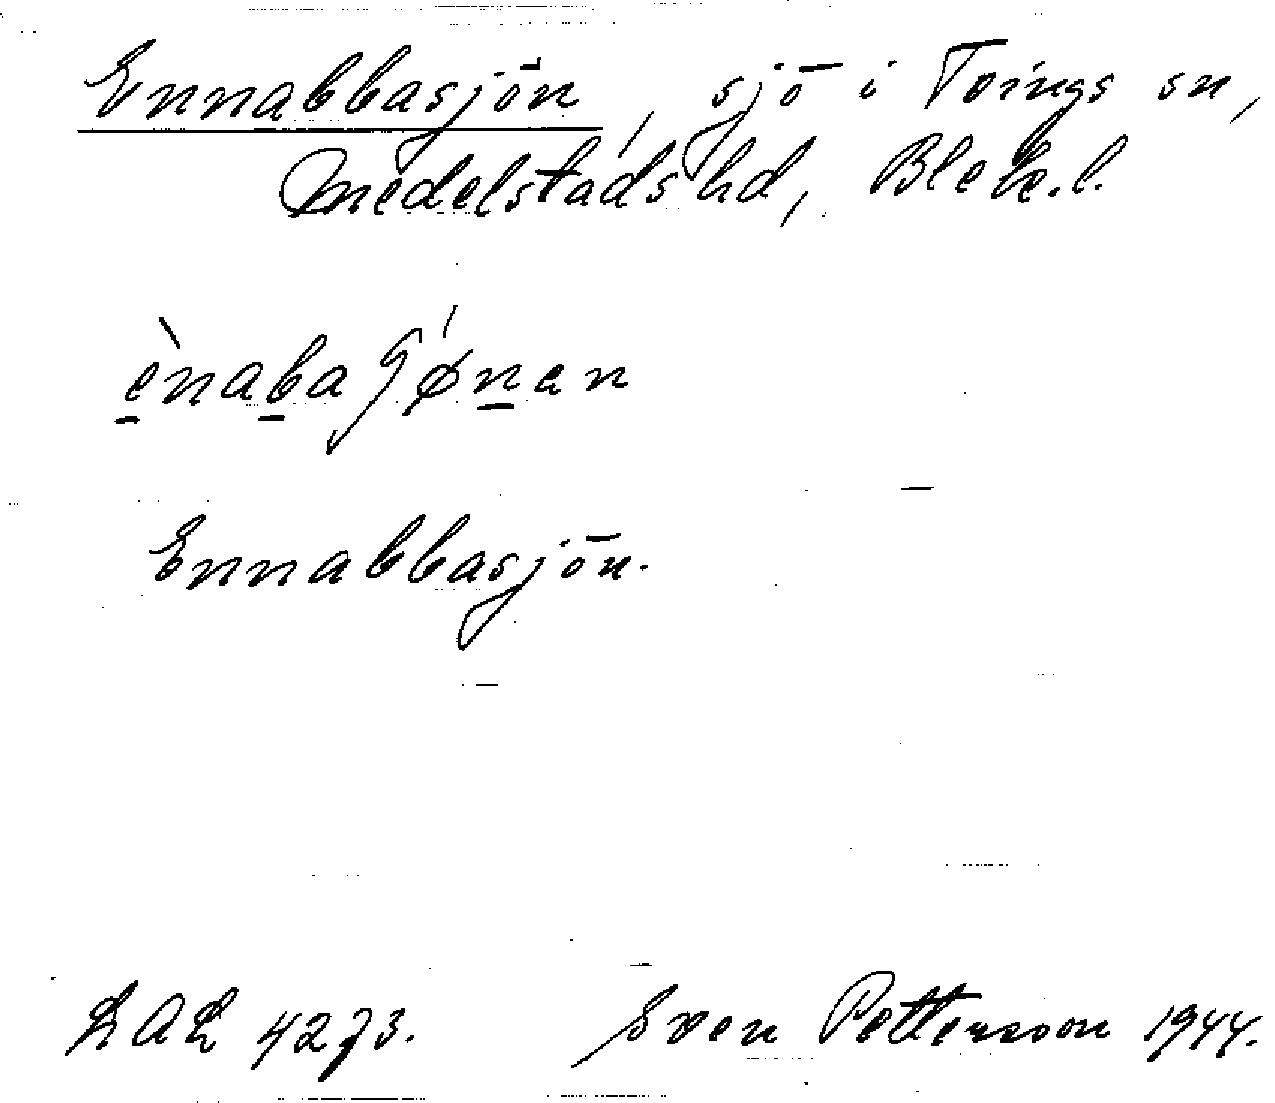 Ennabbasjön, sjö i Tvings sn,
Medelstads hd, Blek. l.
ènabaʃǿnan
Ennabbasjön.
LAL 4273.
Sven Pettersson 1944.